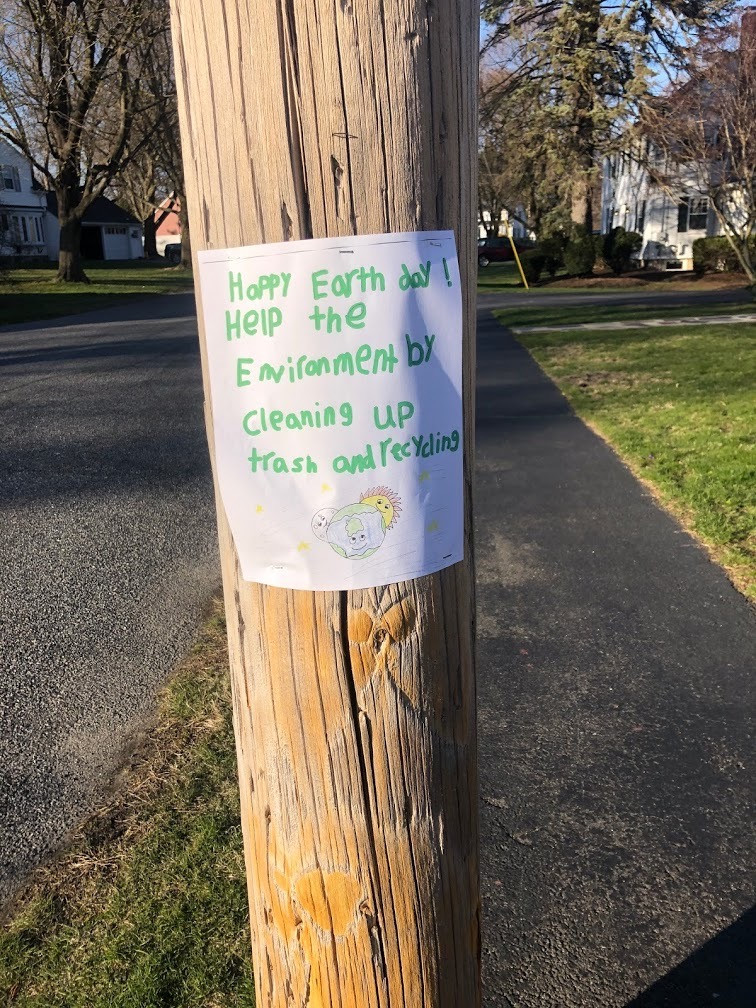 Happy Earth day!
Help the
Environment by
cleaning up
trash and recycling